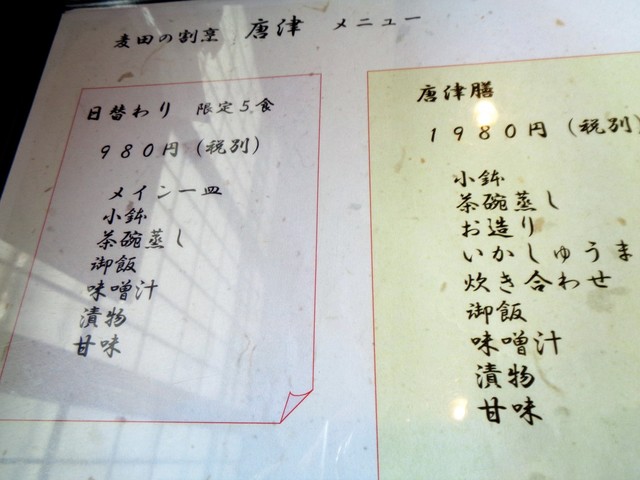 麦田の割烹 唐津 メニュー
日替わり 限定5食
980円(税別)
メイン一皿
小鉢
茶碗蒸し
御飯
味噌汁
漬物
甘味
唐津膳
1980円(税別)
小鉢
茶碗蒸し
お造り
いかしゅうま
炊き合わせ
御飯
味噌汁
漬物
甘味